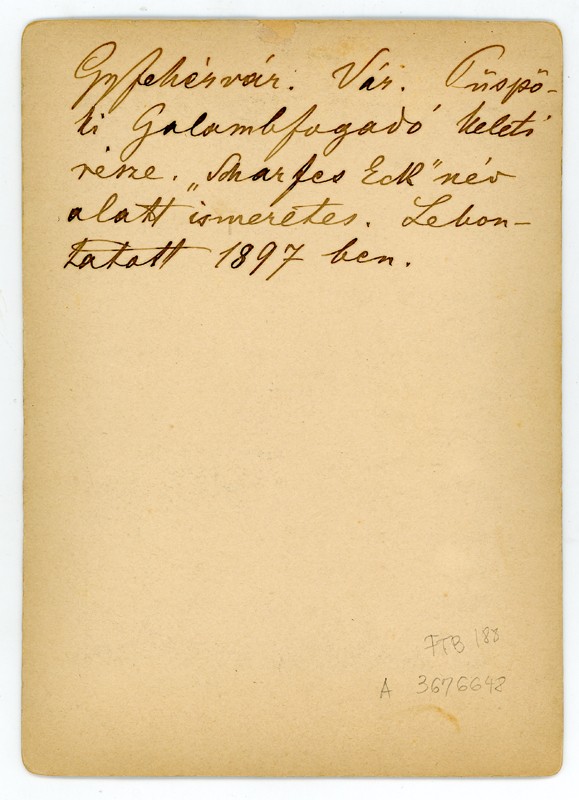 Gyfehérvár. Vár. Püspö-
ki Galambfogadó keleti
része. „Scharfes Eck" név
alatt ismeretes. Lebon-
tatott 1897 ben.
FTB 188
A 3676642